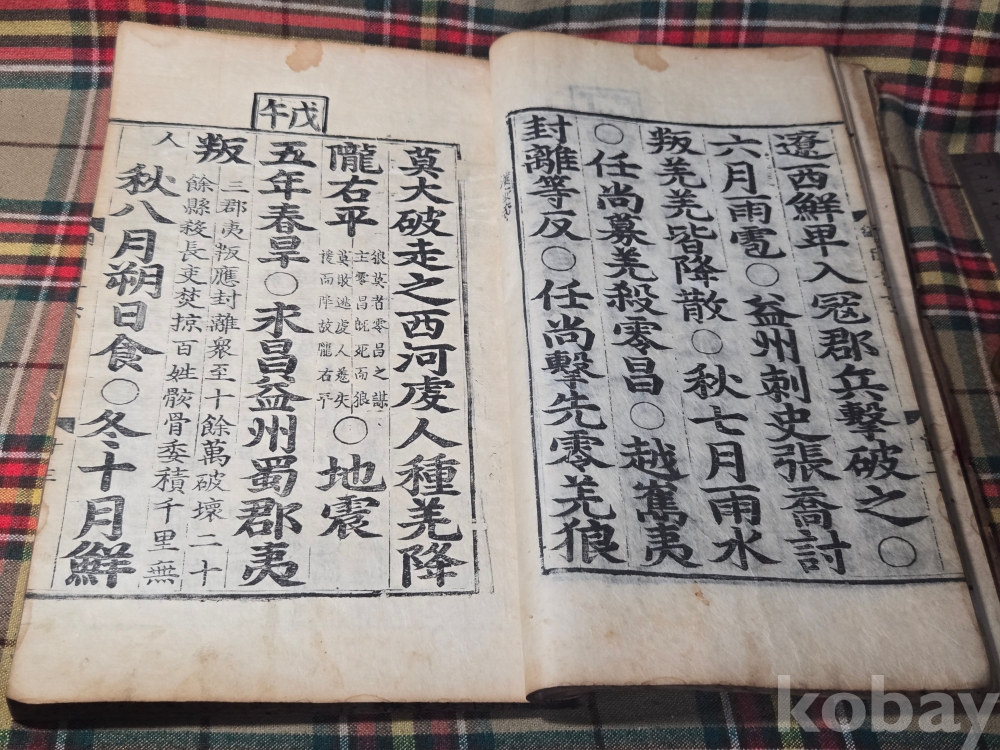 遼西鮮卑入寇郡兵擊破之○
六月雨雹○益州刺史張喬討
叛羌羌皆降散○秋七月雨水
○任尚募羌殺零昌○越嶲夷
封離等反○任尚擊先零羌狼
戊午
莫大破走之西河虔人種羌降
隴右平
狼莫者零昌之謀
主零昌旣死而狼
莫敗逃虔人悉失
援而降故隴右平
○地震
五年春旱○永昌益州蜀郡夷
叛
三郡夷叛應封離衆至十餘萬破壞二十
餘縣殺長吏焚掠百姓骸骨委積千里無
人
秋八月朔日食○冬十月鮮
kobay